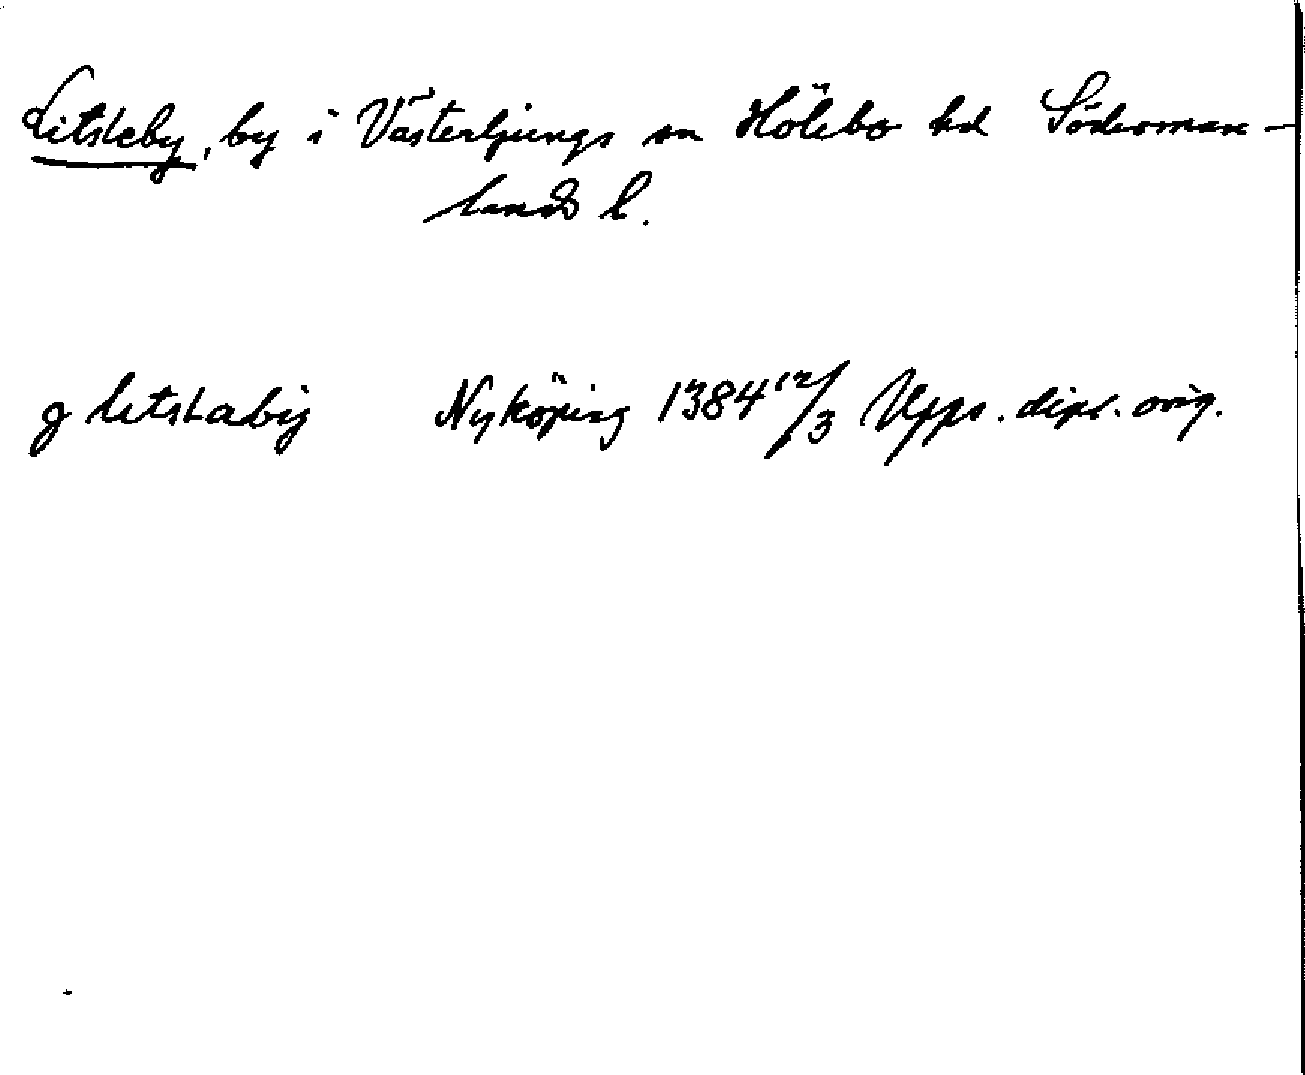 Litsleby, by i Västerljungs sn Hölebo hd Söderman-
lands l.
j litslabij Nyköping 1384 12/3 Upps. dipl. orig.